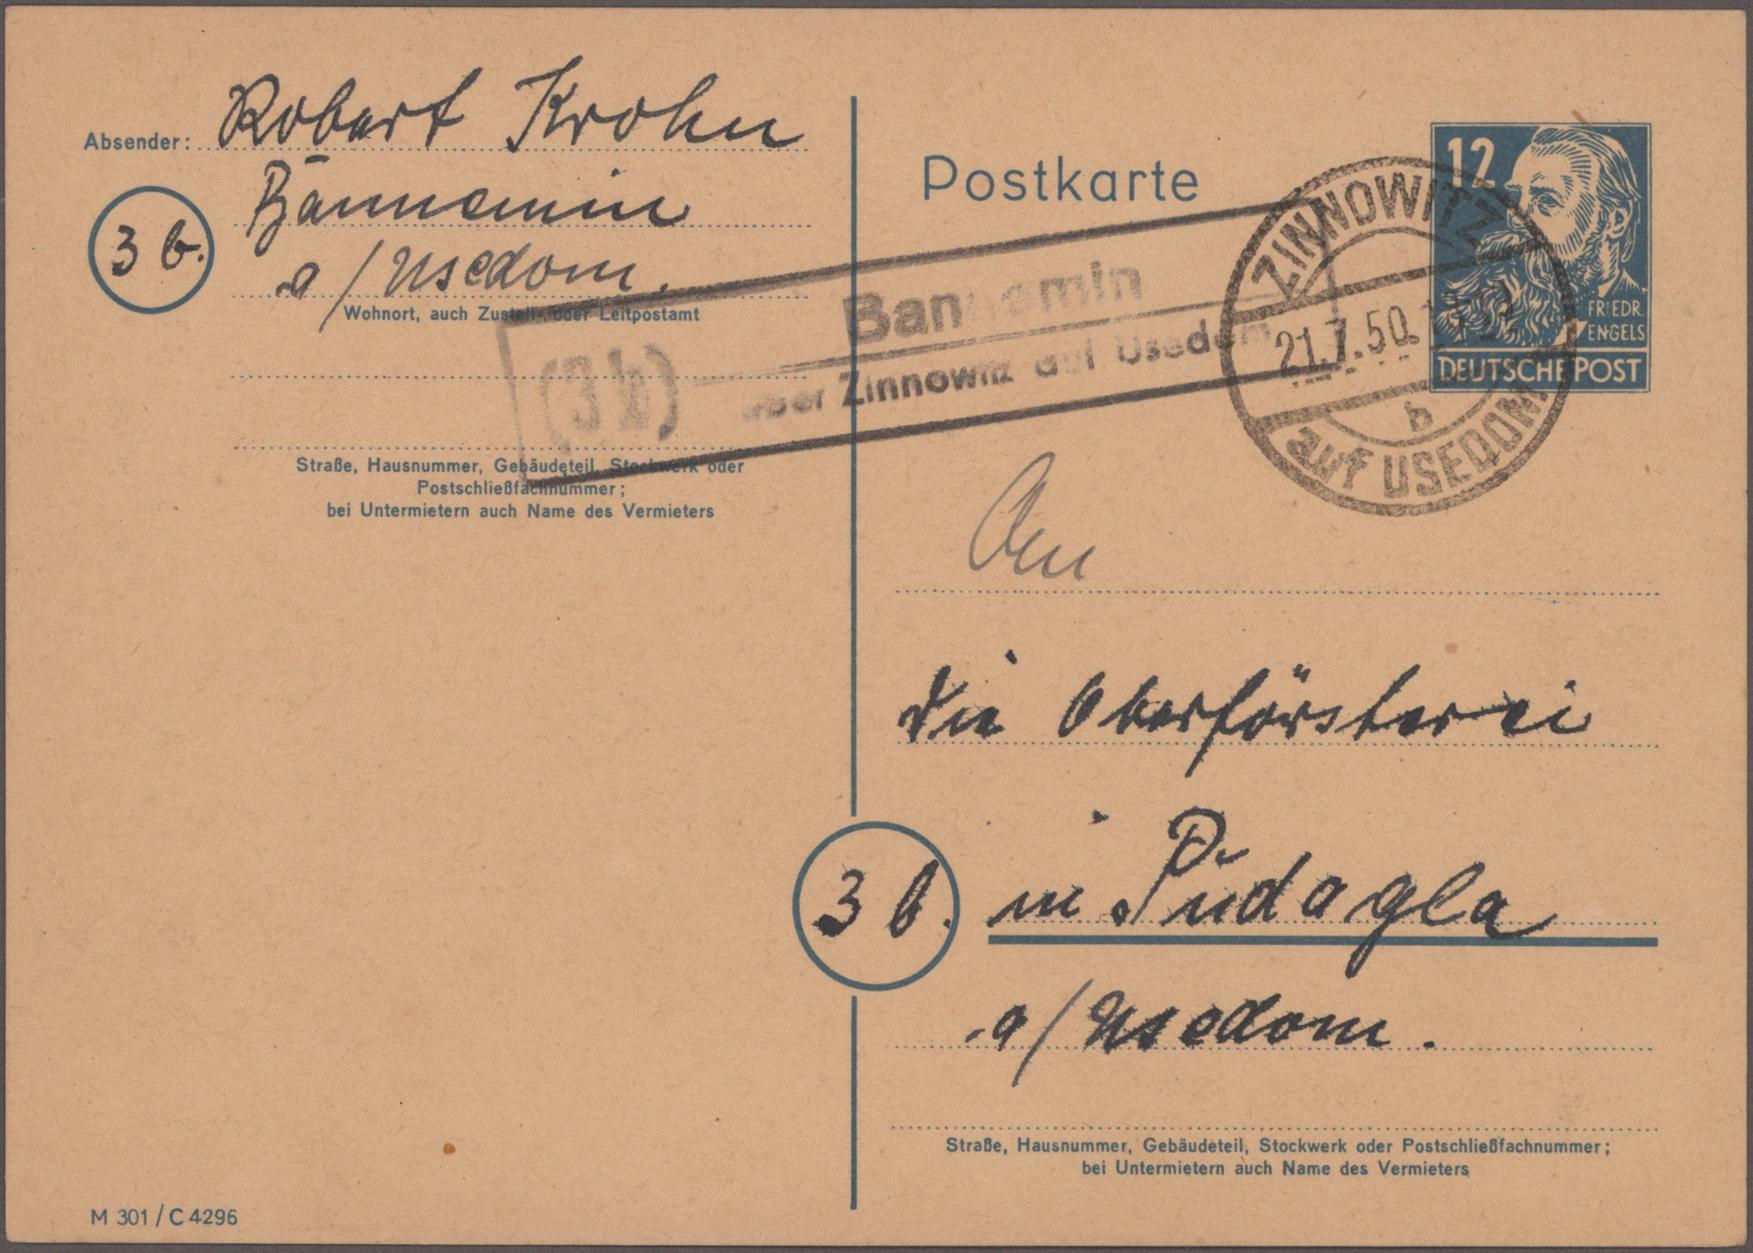 Absender: Robert Krohn
3 b. Bannemin
a/Usedom.
Wohnort, auch Zustell- oder Leitpostamt
Straße, Hausnummer, Gebäudeteil, Stockwerk oder
Postschließfachnummer;
bei Untermietern auch Name des Vermieters
Postkarte
(3b) Bannemin
über Zinnowitz auf Usedom
ZINNOWITZ
21.7.50.
b
auf USEDOM
12
FRIEDR.
ENGELS
DEUTSCHE POST
An
die Oberförsterei
3 b. in Pudagla
a/Usedom.
Straße, Hausnummer, Gebäudeteil, Stockwerk oder Postschließfachnummer;
bei Untermietern auch Name des Vermieters
M 301 / C 4296